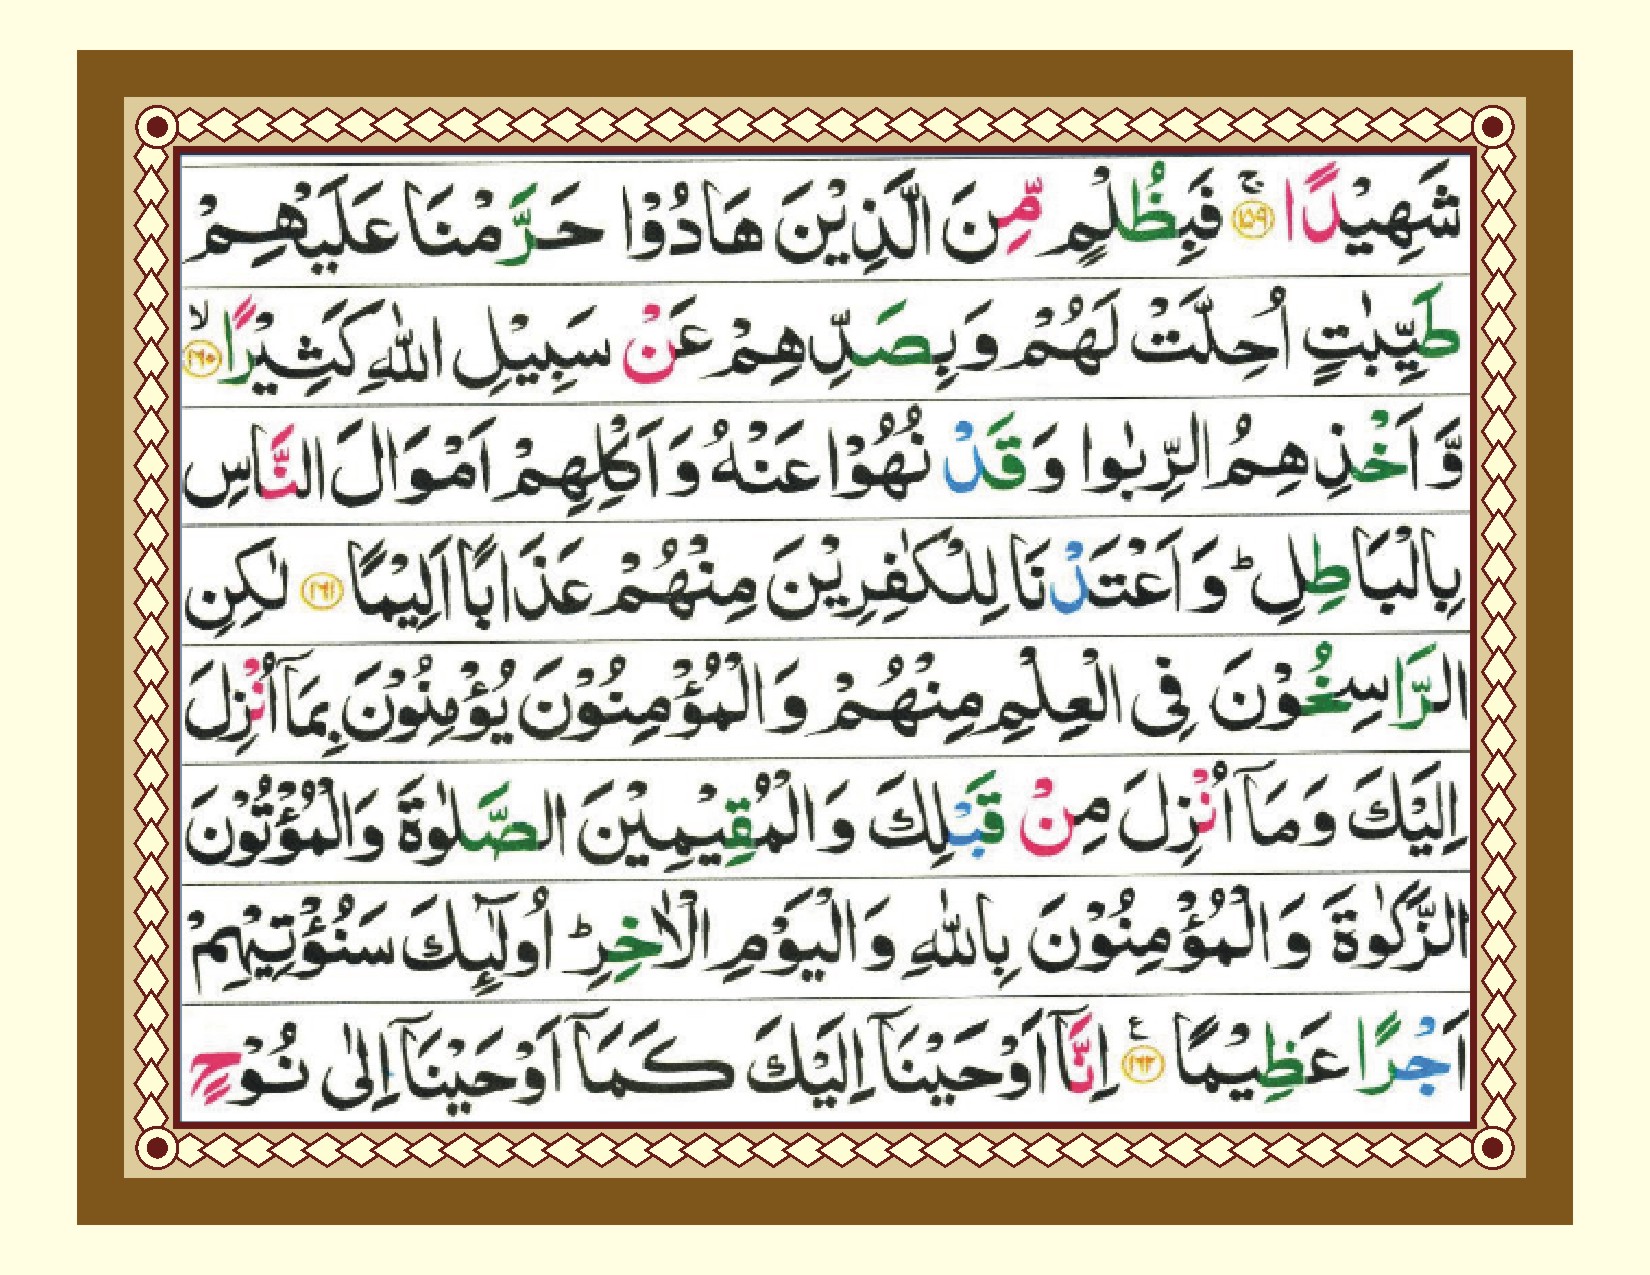 شَهِيْدًا ۚ ﴿۱۵۹﴾ فَبِظُلْمٍ مِّنَ الَّذِيْنَ هَادُوْا حَرَّمْنَا عَلَيْهِمْ
طَيِّبٰتٍ اُحِلَّتْ لَهُمْ وَبِصَدِّهِمْ عَنْ سَبِيْلِ اللّٰهِ كَثِيْرًا ۙ ﴿۱۶۰﴾
وَّاَخْذِهِمُ الرِّبٰوا وَقَدْ نُهُوْا عَنْهُ وَاَكْلِهِمْ اَمْوَالَ النَّاسِ
بِالْبَاطِلِ ؕ وَاَعْتَدْنَا لِلْكٰفِرِيْنَ مِنْهُمْ عَذَابًا اَلِيْمًا ﴿۱۶۱﴾ لٰكِنِ
الرَّاسِخُوْنَ فِى الْعِلْمِ مِنْهُمْ وَالْمُؤْمِنُوْنَ يُؤْمِنُوْنَ بِمَاۤ اُنْزِلَ
اِلَيْكَ وَمَاۤ اُنْزِلَ مِنْ قَبْلِكَ وَالْمُقِيْمِيْنَ الصَّلٰوةَ وَالْمُؤْتُوْنَ
الزَّكٰوةَ وَالْمُؤْمِنُوْنَ بِاللّٰهِ وَالْيَوْمِ الْاٰخِرِ ؕ اُولٰٓئِكَ سَنُؤْتِيْهِمْ
اَجْرًا عَظِيْمًا ﴿۱۶۲﴾ ع اِنَّاۤ اَوْحَيْنَاۤ اِلَيْكَ كَمَاۤ اَوْحَيْنَاۤ اِلٰى نُوْحٍ